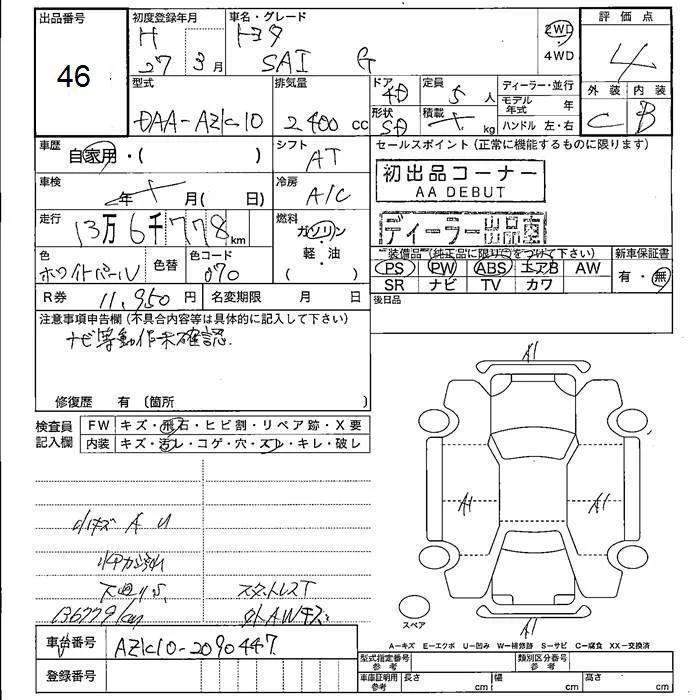 出品番号
46
初度登録年月
H
27 3月
車名・グレード
トヨタ
SAI G
2WD
4WD
評価点
4
外装 内装
C B
型式
DAA-AZK10
排気量
2400 cc
ドア
4D
形状
SD
定員
5 人
積載
kg
ディーラー・並行
モデル年式 年
ハンドル 左・右
車歴
自家用・( )
シフト
AT
セールスポイント (正常に機能するものに限ります)
初出品コーナー
AA DEBUT
ディーラー出品車
車検
年 ( 月 日)
冷房
A/C
走行
13万6千778km
燃料
ガソリン
軽・油
( )
色
ホワイトパール
色替
色コード
070
装備品 (純正品に限り○をつけて下さい)
PS PW ABS エアB AW
SR ナビ TV カワ
新車保証書
有・無
R券 11,950円
名変期限 月 日
後日品
注意事項申告欄 (不具合内容等は具体的に記入して下さい)
ナビ等動作未確認.
修復歴 有 〔箇所 〕
検査員
記入欄
FW キズ・飛石・ヒビ割・リペア跡・X要
内装 キズ・汚レ・コゲ・穴・スレ・キレ・破レ
A1
A1
A1
A1
小キズ A U
下廻りS
スタットレスT
136779km
外AWキズ
スペア
A−キズ E−エクボ U−凹み W−補修跡 S−サビ C−腐食 XX−交換済
車台番号
AZK10-2090447
登録番号
型式指定番号
参考
類別区分番号
参考
車庫証明用
参考
長さ cm
幅 cm
高さ cm